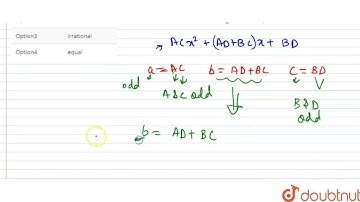 Option3 irrational
Option4 equal
→ ACx² + (AD+BC)x + BD
a = AC b = AD+BC C = BD
odd
A & C odd
B & D
odd
b = AD + BC
doubtnut